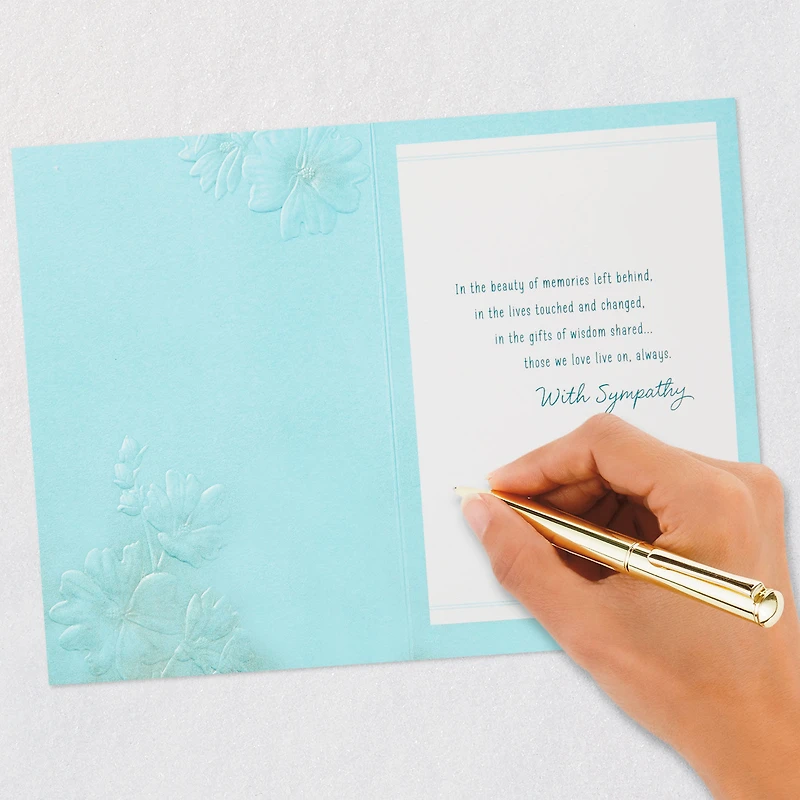 In the beauty of memories left behind,
in the lives touched and changed,
in the gifts of wisdom shared...
those we love live on, always.
With Sympathy